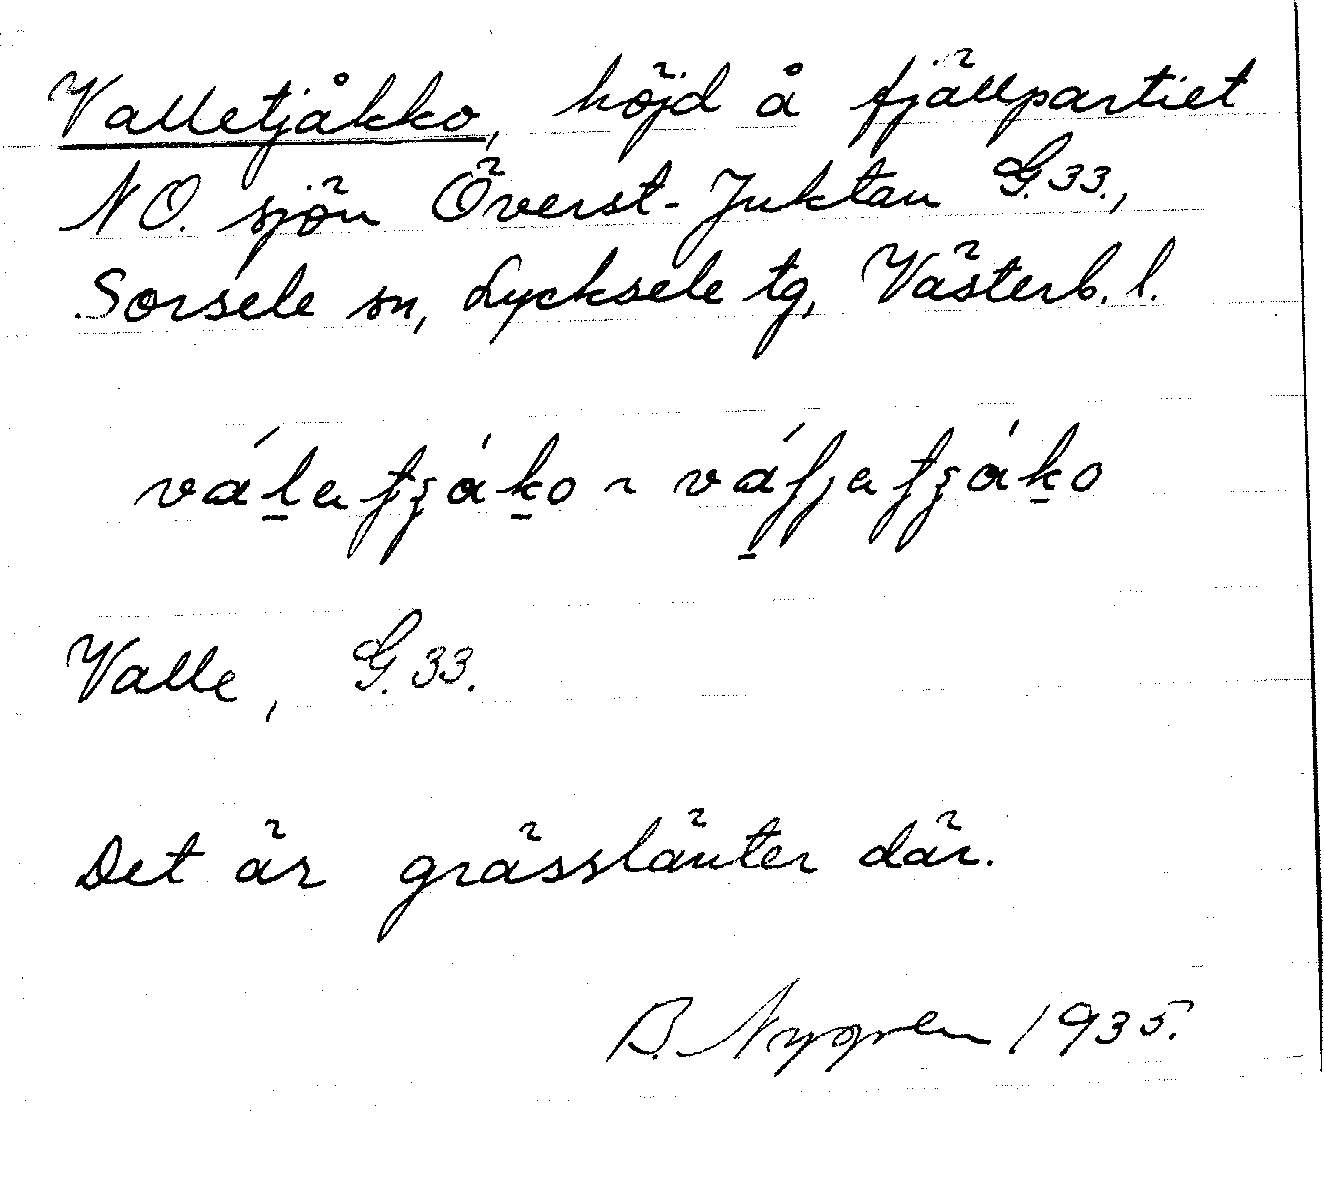 Valletjåkko, höjd å fjällpartiet
NO. sjön Överst-Juktan G.33.,
Sorsele sn, Lycksele tg, Västerb. l.
Valle, G.33.
Det är grässlänter där.
B. Nygren 1935.